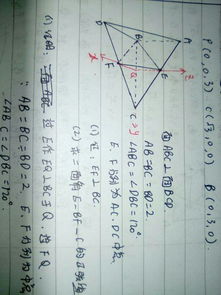 P(0,0,3) C(√3,0,0) B(0,3,0).
D
B
A
F
Q
E
x
z
C
y
面ABC⊥面BCD.
AB=BC=BD=2.
∠ABC=∠DBC=120°
E、F分别为AC、DC中点.
(1) 证: EF⊥BC.
(2) 求二面角E-BF-C的正弦值
(1) 证明: 过E作EQ⊥BC于Q. 连FQ.
∵ AB=BC=BD=2. E、F分别为中点
∠ABC=∠DBC=120°